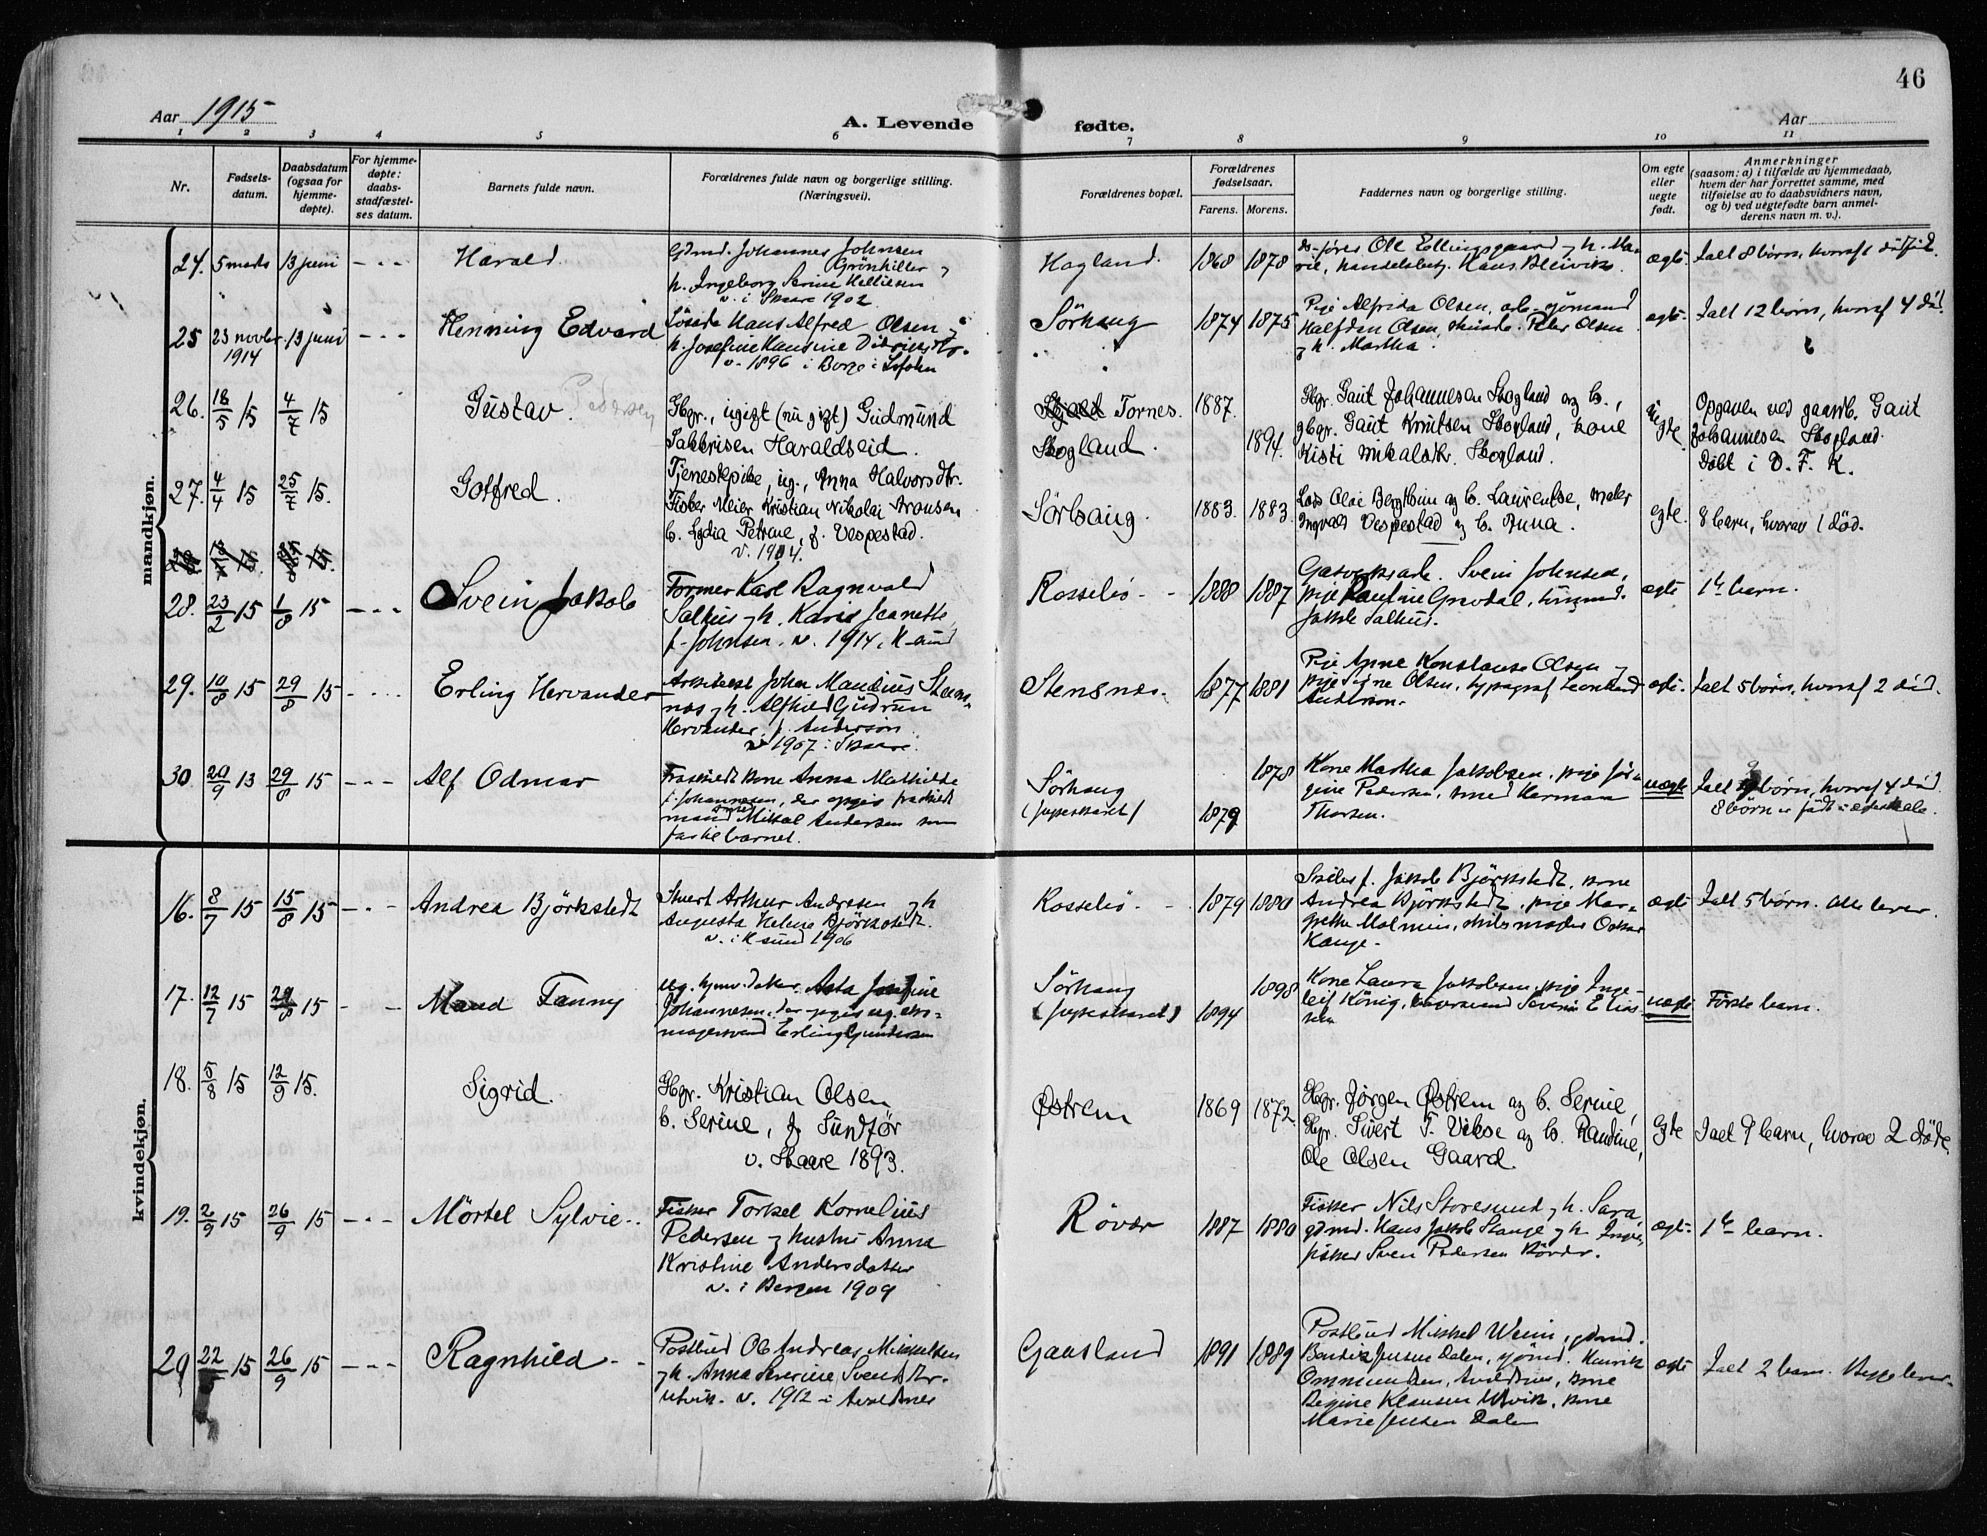 46
Aar 1915
A. Levende fødte.
Aar
1 2 3 4 5 6 7 8 9 10 11
Nr.
Fødsels-
datum.
Daabsdatum
(ogsaa for
hjemme-
døpte).
For hjemme-
døpte:
daabs-
stadfæstel-
ses datum.
Barnets fulde navn.
Forældrenes fulde navn og borgerlige stilling.
(Næringsvei).
Forældrenes bopæl.
Forældrenes
fødselsaar.
Farens. Morens.
Faddernes navn og borgerlige stilling.
Om egte
eller
uegte
født.
Anmerkninger
(saasom: a) i tilfælde av hjemmedaab,
hvem der har forrettet samme, med
tilføielse av to daabsvidners navn,
og b) ved uegtefødte barn anmel-
derens navn m. v.).
mandkjøn.
24. 5 marts 13 juni - - - Harald.
Gdmd. Johannes Johnsen
Grönhiller
h. Ingeborg Serine
v. i Skaare 1902
Hagland. 1868 1878
Ole Ellingsgaard h. Ma-
handelsbetj. Hans Bleivik
ægte. Ialt 8 børn, hvoraf 1
25 23 novbr 13 juni - - - Henning Edvard
1914
Hans Alfred Olsen
h. Josefine Hansine
v. 1896 i Borge i Lofoten
Sörhaug 1874 1875
Pige Alfrida Olsen,
Halfdan Olsen, Peter Olsen
h. Martha.
ægte. Ialt 12 børn, hvoraf 4 död
26. 18/5 15 4/7 15 Gustav. Pedersen
Gbgr., ugigt (nu gigt) Gudmund
Jakobsen Haraldseid.
Tjenestepike, ug., Anna Halvorsdtr.
Tornes. 1887.
Skogland. 1894.
Gbgr. Gaut Johannesen Skogland og h.,
gbgr. Gaut Knutsen Skogland, kone
Kisti Mikalsdtr. Skogland.
uegte.
Opgaven ved gaardb. Gaut
Johannesen Skogland.
Døbt i D. F. K.
27. 4/4 15 25/7 15. Gotfred.
Fisker Meier Kristian Nikolai Aronsen
h. Lydia Petrine, f. Vespestad.
v. 1904.
Sörhaug. 1883. 1883.
Olai Bergthun og h. Laurentse, maler
Ingvald Vespestad og h. Anna.
egte. 8 barn, hvorav 1 død.
28. 23/2 15 1/8 15 - - - Svein Jakob
Former Karl Ragnvald
Salhus h. Karie Jeanette
f. Johnsen. v. 1914. K-sund
Rosselø - - 1888 1887
Gasverksarb. Svein Johnsen,
pige Pauline Grødal,
Jakob Salhus.
ægte 1te barn.
29. 10/8 15 29/8 15 - - - Erling Hervander
Arkitekt Johan Mandius Stens-
næs h. Alfhild Gudrun
Hervander f. Anderson
v. 1907 i Skaare.
Stensnæs. 1877 1881
Pige Anne Konstanse Olsen
pige Signe Olsen, typograf Leonhard
Anderson.
ægte. Ialt 5 børn, hvoraf 2 död.
30 20/9 13 29/8 15 - - - Alf Odmar
Fraskilt kone Anna Mathilde
f. Johannesen, der opgir fraskilt
mand Mikal Andersen som
far til barnet.
Sörhaug 1879 1878
Kone Martha Jakobsen, pige Jör-
gine Pedersen, Herman
Thorsen.
uegte Ialt 9 børn, hvoraf 4 död.
8 børn er født i egteskab.
kvindekjøn.
16. 8/7 15 15/8 15 - - - Andrea Björkstedt
Stuert Arthur Andresen h
Augusta Helene Björkstedt.
v. i K-sund 1906
Rosselø - - 1879 1880
Jakob Björkstedt, kone
Andrea Björkstedt, pige Mar-
grethe Malmin, Oskar
Kange.
ægte Ialt 5 børn. Alle lever.
17. 12/7 15 29/8 15 - - Maud Fanny
Asta Josefine
Johannesen, der opgir ug. skr-
magersvend Erling Gundersen
Sörhaug 1894 1898
Kone Laura Jakobsen, pige Inge-
leif König, Severin Elias-
sen
uegte Förste barn.
18. 5/8 15 12/9 15. Sigrid.
Gbgr. Kristian Olsen
h. Serine, f. Sundför
v. Skaare 1893.
Østrem 1869 1872.
Gbgr. Jørgen Østrem og h. Serine,
Gbgr. Sivert T. Vikse og h. Randine,
Ole Olsen Gaard.
Egte Ialt 9 barn, hvorav 2 döde.
19. 2/9 15 26/9 15 - - - Mörtel Sylvie.
Fisker Torkel Kornelius
Pedersen og hustru Anna
Kristine Andersdatter
v. i Bergen 1909
Rövær 1887 1880
Fisker Nils Storesund h. Sara,
gdmd. Hans Jakob Stange h. Inger,
fisker Sven Pedersen Rövær.
ægte. 1te barn.
20 22 15 26/9 15 - - - Ragnhild - -
Postbud Ole Andreas Mikkelsen
h. Anna Severine Svendsdtr.
Utvik. v. 1912 i Avaldsnes
Gausland 1891 1889
Postbud Mikkel Weim, gdmd.
Bendix Jensen Dalen, Henrik
Ommundsen, Avaldsnes, kone
Regine Klausen Utvik, kone
Marie Jensen Dalen
ægte Ialt 2 barn. Begge lever.